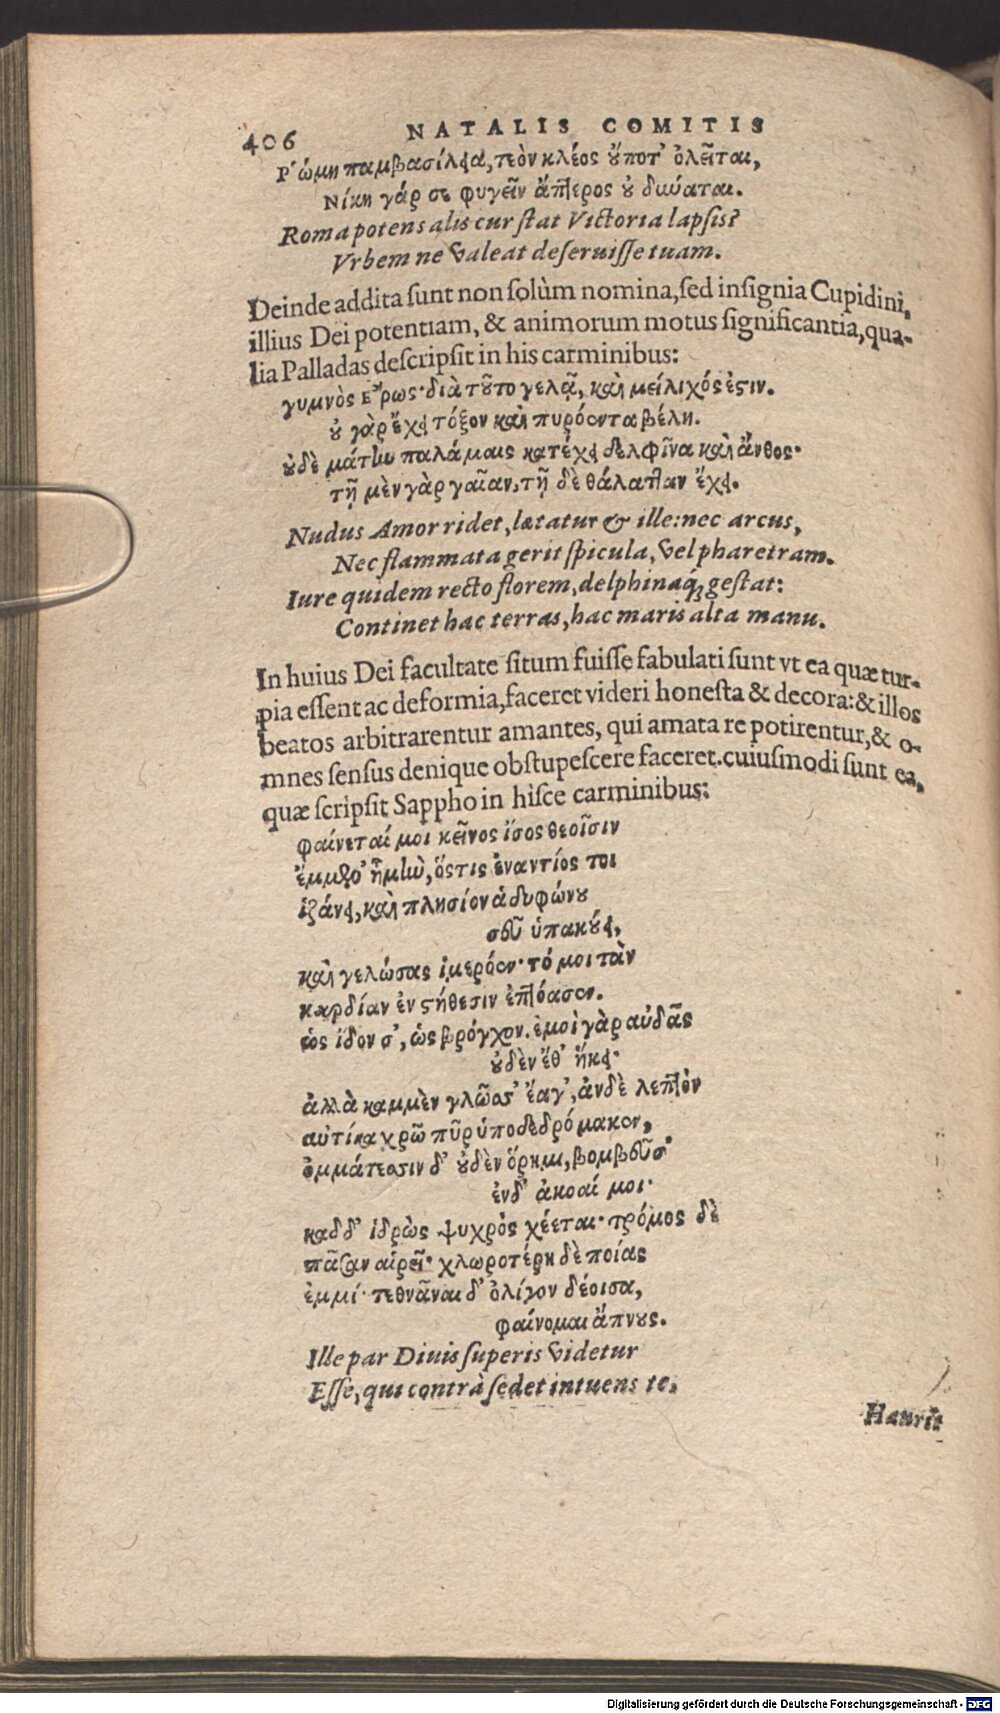 406 NATALIS COMITIS
Ῥώμη παμβασίλεια, τεὸν κλέος οὔποτ' ὀλεῖται,
Νίκη γάρ σε φυγεῖν ἄπτερος οὐ δύναται.
Roma potens alis cur ſtat Victoria lapſis?
Vrbem ne valeat deſeruiſſe tuam.
Deinde addita ſunt non ſolùm nomina, ſed inſignia Cupidini,
illius Dei potentiam, & animorum motus ſignificantia, qua-
lia Palladas deſcripſit in his carminibus:
γυμνὸς Ἔρως· διὰ τοῦτο γελᾷ, καὶ μείλιχός ἐστιν.
οὐ γὰρ ἔχει τόξον καὶ πυρόεντα βέλη.
οὐδὲ μάτην παλάμαις κατέχει δελφῖνα καὶ ἄνθος·
τῇ μὲν γὰρ γαῖαν, τῇ δὲ θάλατταν ἔχει.
Nudus Amor ridet, lætatur & ille: nec arcus,
Nec flammata gerit ſpicula, vel pharetram.
Iure quidem recto florem, delphinaq́; geſtat:
Continet hac terras, hac maris alta manu.
In huius Dei facultate ſitum fuiſſe fabulati ſunt vt ea quæ tur-
pia eſſent ac deformia, faceret videri honeſta & decora: & illos
beatos arbitrarentur amantes, qui amata re potirentur, & o-
mnes ſenſus denique obſtupeſcere faceret. cuiuſmodi ſunt ea,
quæ ſcripſit Sappho in hiſce carminibus:
φαίνεταί μοι κεῖνος ἴσος θεοῖσιν
ἔμμεν' ἤμην, ὅστις ἐναντίος τοι
ἱζάνει, καὶ πλησίον ἁδυφώνου
σεῦ ὑπακούει,
καὶ γελώσας ἱμερόεν· τό μοι τὰν
καρδίαν ἐν στήθεσιν ἐπτόασεν.
ὡς ἴδον σ', ὡς βρόγχον. ἐμοὶ γὰρ αὐδᾶς
οὐδὲν ἔθ' ἥκει·
ἀλλὰ καμμὲν γλῶσσ' ἔαγ', ἀνδὲ λεπτὸν
αὐτίκα χρῶ πῦρ ὑποδεδρόμακεν,
ὀμμάτεσσιν δ' οὐδὲν ὄρημι, βομβεῦσ'
ἐνδ' ἀκοαί μοι·
καδδ' ἱδρὼς ψυχρὸς χέεται· τρόμος δὲ
πᾶσαν αἱρεῖ· χλωροτέρη δὲ ποίας
ἐμμί· τεθνᾶναι δ' ὀλίγον δέοισα,
φαίνομαι ἄπνους.
Ille par Diuis ſuperis videtur
Eſſe, qui contrà ſedet intuens te,
Haurit
Digitalisierung gefördert durch die Deutsche Forschungsgemeinschaft - DFG